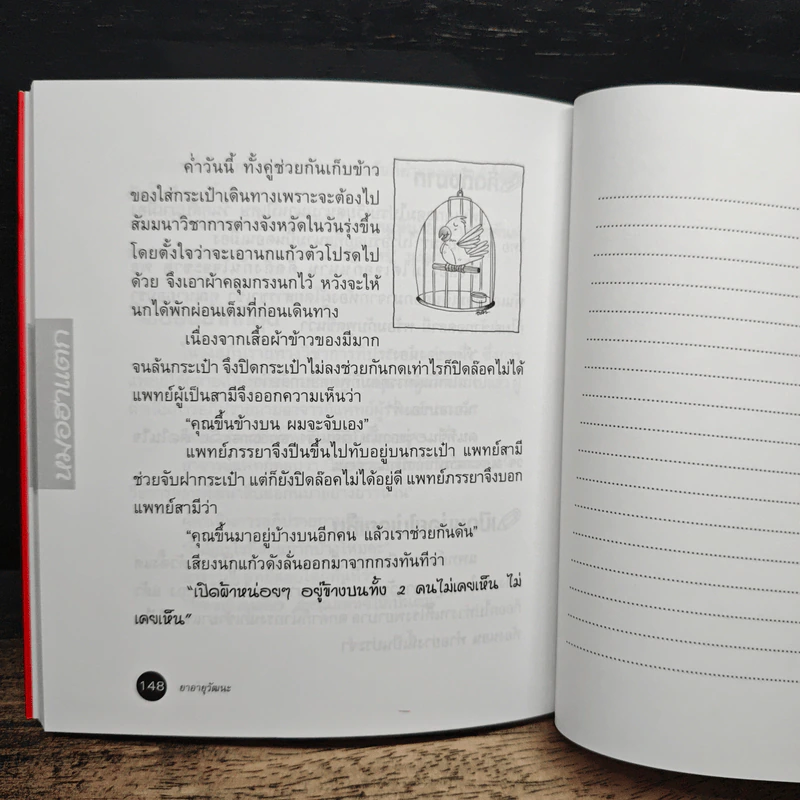 ค่ำวันนี้ ทั้งคู่ช่วยกันเก็บข้าว
ของใส่กระเป๋าเดินทางเพราะจะต้องไป
สัมมนาวิชาการต่างจังหวัดในวันรุ่งขึ้น
โดยตั้งใจว่าจะเอานกแก้วตัวโปรดไป
ด้วย จึงเอาผ้าคลุมกรงนกไว้ หวังจะให้
นกได้พักผ่อนเต็มที่ก่อนเดินทาง
เนื่องจากเสื้อผ้าข้าวของมีมาก
จนล้นกระเป๋า จึงปิดกระเป๋าไม่ลงช่วยกันกดเท่าไรก็ปิดล๊อคไม่ได้
แพทย์ผู้เป็นสามีจึงออกความเห็นว่า
“คุณขึ้นข้างบน ผมจะจับเอง”
แพทย์ภรรยาจึงปีนขึ้นไปทับอยู่บนกระเป๋า แพทย์สามี
ช่วยจับฝากระเป๋า แต่ก็ยังปิดล๊อคไม่ได้อยู่ดี แพทย์ภรรยาจึงบอก
แพทย์สามีว่า
“คุณขึ้นมาอยู่บ้างบนอีกคน แล้วเราช่วยกันดัน”
เสียงนกแก้วดังลั่นออกมาจากกรงทันทีว่า
“เปิดผ้าหน่อยๆ อยู่ข้างบนทั้ง 2 คนไม่เคยเห็น ไม่
เคยเห็น”
148 ยาอายุวัฒนะ
หมอฮาแตก